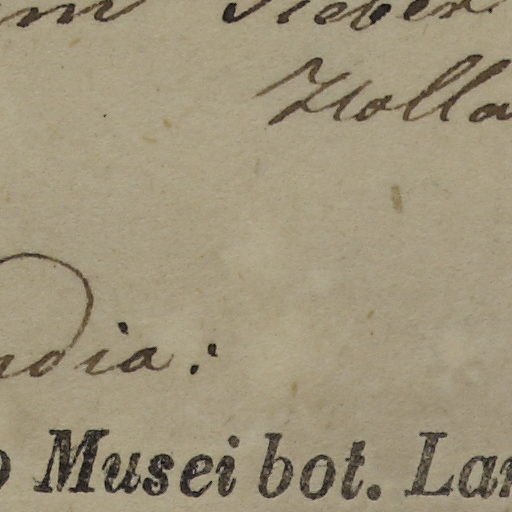 Sieber
Holla
dia.
Musei bot. Lan